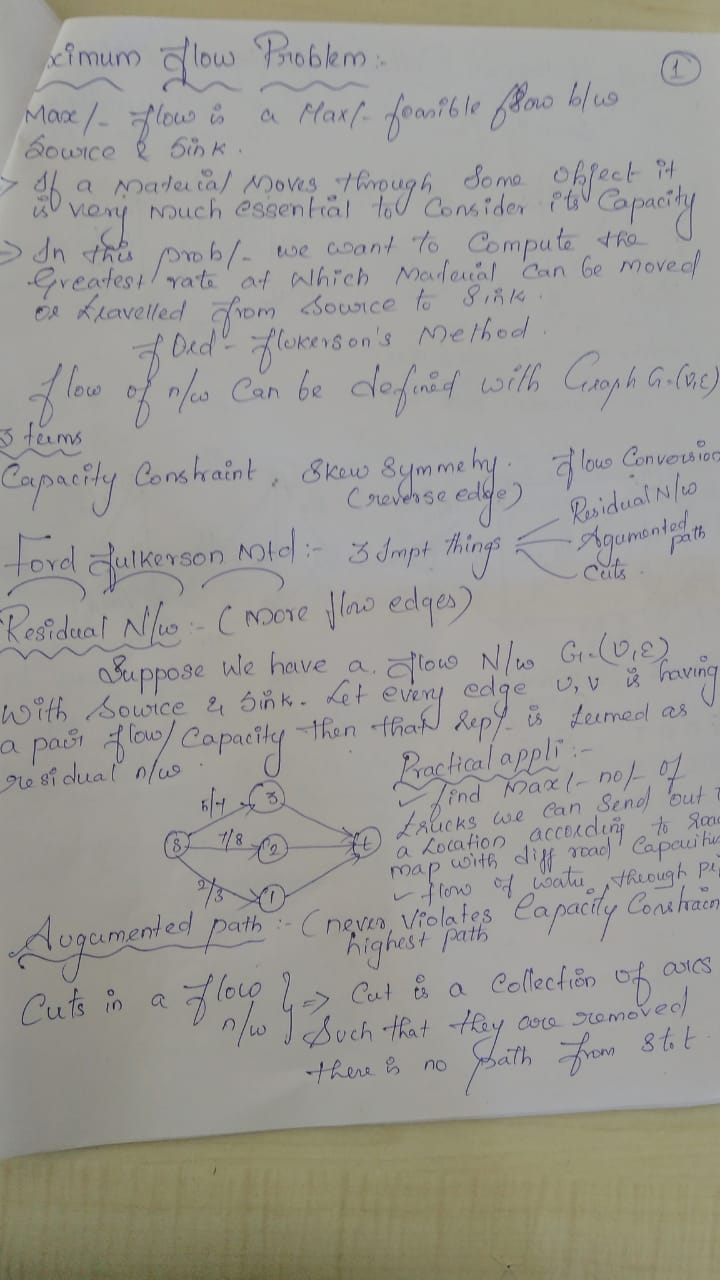 ximum flow Problem:-
1
Max/- flow is a Max/- feasible flow b/w
Source & Sink.
If a Material Moves through Some object it
is very much essential to Consider its Capacity
=> In this prob/- we want to Compute the
Greatest rate at which Material Can be moved
or travelled from Source to Sink.
ford - flukerson's Method.
flow of n/w Can be defined with Graph G=(V,E)
3 terms
Capacity Constraint, Skew Symmetry. flow Conversio
(reverse edge)
Residual N/w
Ford fulkerson Mtd:- 3 Impt things
Agumented path
Cuts.
Residual N/w:- (More flow edges)
Suppose We have a flow N/w G=(V,E)
With Source & Sink. Let every edge U,V is having
a pair flow/Capacity then that Rep/- is termed as
residual n/w.
Practical appli:-
find Max/- no/- of
trucks we can Send out
a Location according to Roa
map with diff road Capacitie
flow of wate, through pi
5/4 3
S 7/8 2 t
2/3 1
Augumented path:- (never Violates Capacity Constrain
highest path
Cuts in a flow n/w } => Cut is a Collection of arcs
Such that they are removed
there is no path from S to t